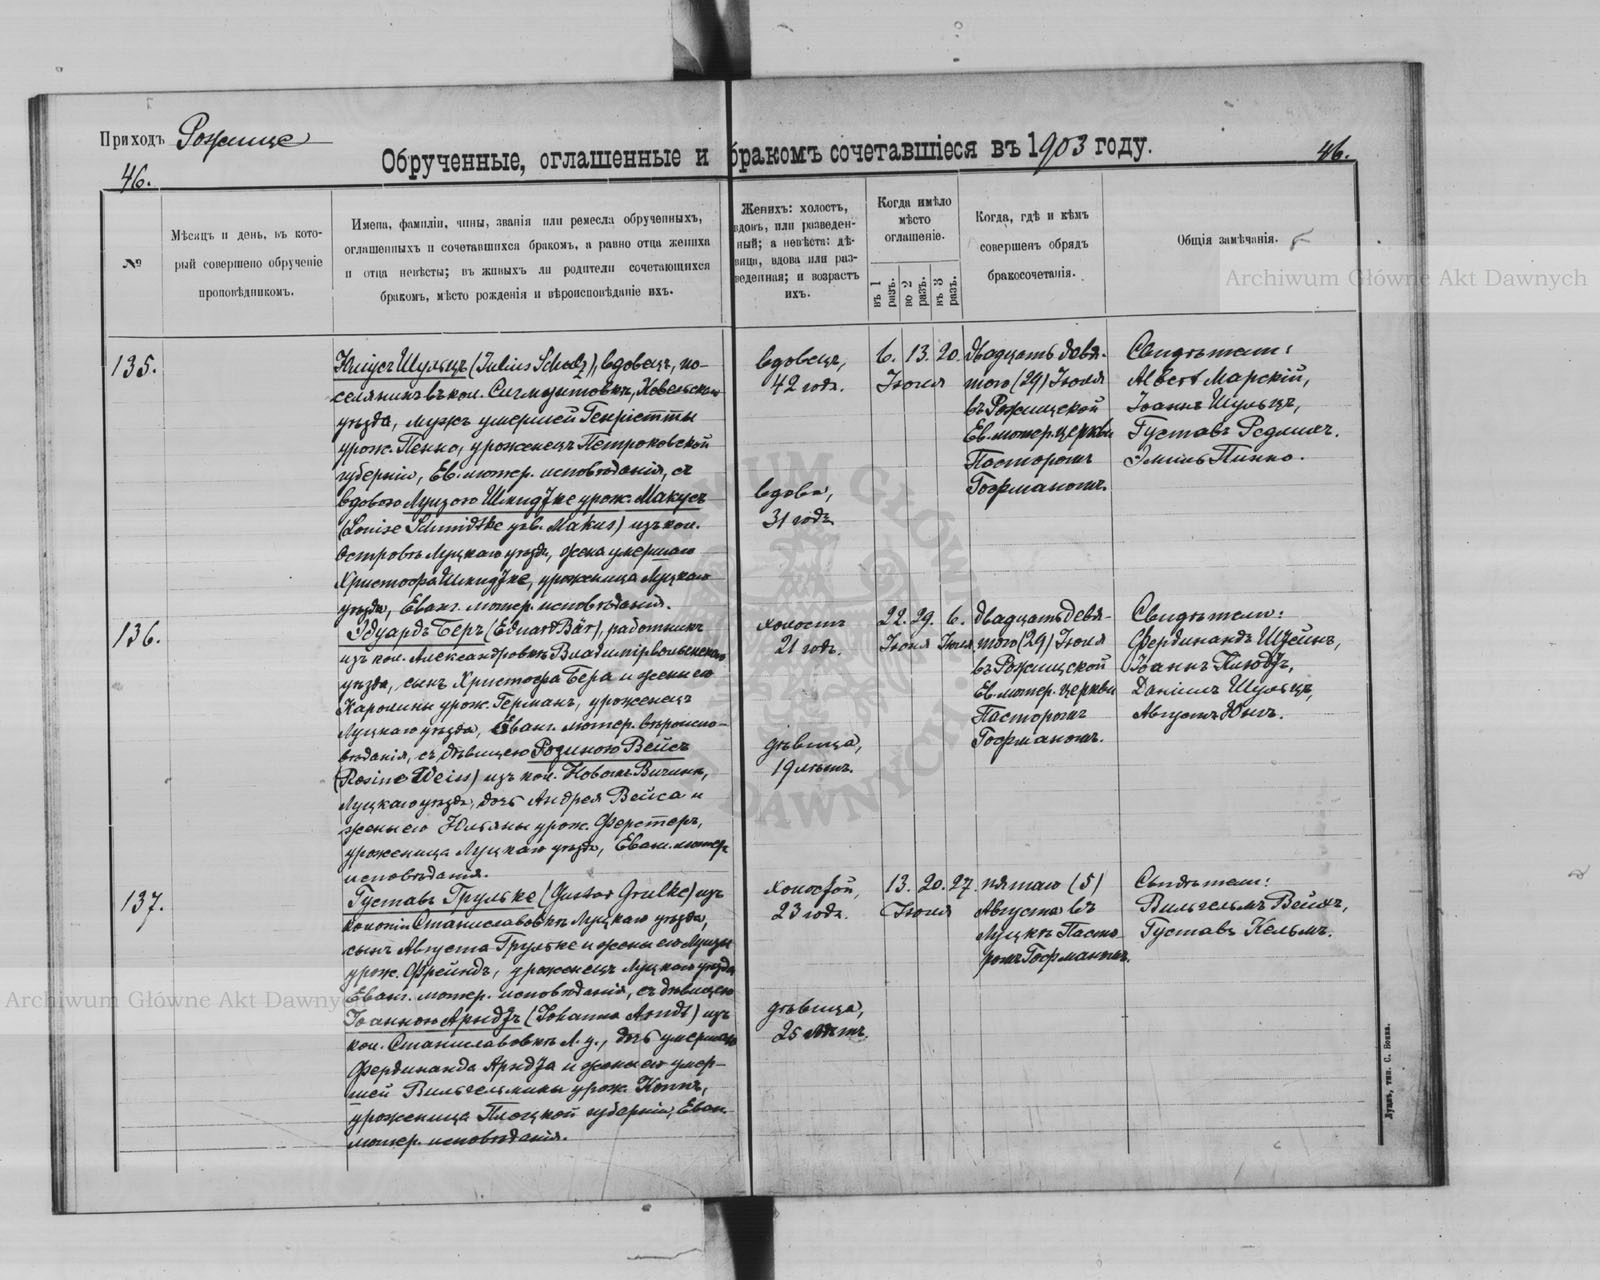 Приходъ Рожище
Обрученные, оглашенные и бракомъ сочетавшіеся въ 1903 году.
46.
46.
№
Мѣсяцъ и день, въ кото-
рый совершено обрученіе
проповѣдникомъ.
Имена, фамиліи, чины, званія или ремесла обрученныхъ,
оглашенныхъ и сочетавшихся бракомъ, а равно отца жениха
и отца невѣсты; въ живыхъ ли родители сочетающихся
бракомъ, мѣсто рожденія и вѣроисповѣданіе ихъ.
Женихъ: холостъ,
вдовъ, или разведен-
ный; а невѣста: дѣ-
вица, вдова или раз-
веденная; и возрастъ
ихъ.
Когда имѣло
мѣсто
оглашеніе.
въ 1 разъ.
во 2 разъ.
въ 3 разъ.
Когда, гдѣ и кѣмъ
совершенъ обрядъ
бракосочетанія.
Общія замѣчанія.
135.
Юліусъ Шульцъ (Julius Scholz), вдовецъ, по-
селянинъ въ кол. Сигмунтовкѣ, Ковельскаго
уѣзда, мужъ умершей Генріетты
урож. Пенно, уроженецъ Петроковской
губерніи, Ев. лютер. исповѣданія, съ
вдовою Луизою Шмидтке урож. Макусъ
(Louise Schmidtke geb. Makus) изъ кол.
Островъ Луцкаго уѣзда, жена умершаго
Христофа Шмидтке, уроженица Луцкаго
уѣзда, Еванг. лютер. исповѣданія.
вдовецъ,
42 годъ.
вдова,
31 годъ
6. 13. 20.
Іюля
двадцать девя-
того (29) Іюля
въ Рожищской
Ев.-лютер. церкви
Пасторомъ
Гофманомъ.
Свидѣтели:
Albert Марскій,
Іоаннъ Шульцъ,
Густавъ Редлихъ.
Эмиль Пинно.
136.
Эдуардъ Беръ (Eduard Bär), работникъ
изъ кол. Александровкѣ Владимірволынскаго
уѣзда, сынъ Христофа Бера и жены его
Каролины урож. Германъ, уроженецъ
Луцкаго уѣзда, Еванг. лютер. вѣроиспо-
вѣданія, съ дѣвицею Розиною Вейсъ
(Rosine Weiss) изъ кол. Новокъ Вичинъ,
Луцкаго уѣзда, дочь Андрея Вейса и
жены его Юльяны урож. Ферстеръ,
уроженица Луцкаго уѣзда, Еванг. лютер.
исповѣданія.
холостъ
21 годъ.
дѣвица,
19 лѣтъ.
22. 29. 6.
Іюня Іюля
двадцать девя-
того (29) Іюля
въ Рожищской
Ев. лютер. церкви
Пасторомъ
Гофманомъ.
Свидѣтели:
Фердинандъ Штейнъ,
Іоаннъ Клюдтъ,
Даніилъ Шульцъ,
Августъ Юнгъ.
137.
Густавъ Грульке (Gustav Grulke) изъ
колоніи Станиславовкѣ Луцкаго уѣзда,
сынъ Августа Грульке и жены его Луизы
урож. Фрейндъ, уроженецъ Луцкаго уѣзда
Еванг. лютер. исповѣданія, съ дѣвицею
Іоанною Арндтъ (Johanna Arndt) изъ
кол. Станиславовкѣ Л. у., дочь умершаго
Фердинанда Арндта и жены его умер-
шей Вильгельмины урож. Коппъ,
уроженица Плоцкой губерніи, Еванг.
лютер. исповѣданія.
холостой,
23 годъ.
дѣвица,
25 лѣтъ.
13. 20. 27.
Іюля
пятаго (5)
Августа въ
Луцкѣ Пасто-
ромъ Гофманомъ.
Свидѣтели:
Вильгельмъ Вейхъ,
Густавъ Кельмъ.
Луцкъ, тип. С. Бокка.
Archiwum Główne Akt Dawnych
Archiwum Główne Akt Dawnych